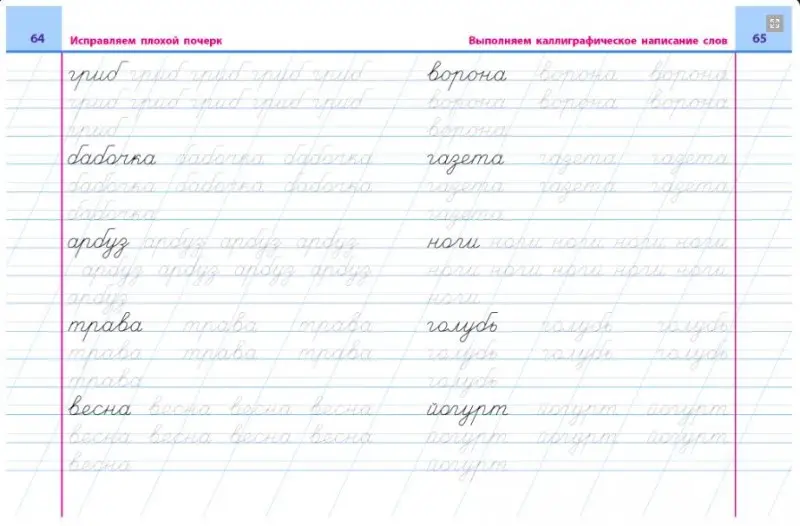 64 Исправляем плохой почерк
гриб гриб гриб гриб гриб
гриб гриб гриб гриб гриб
гриб
бабочка бабочка бабочка
бабочка бабочка бабочка
бабочка
арбуз арбуз арбуз арбуз
арбуз арбуз арбуз арбуз
арбуз
трава трава трава
трава трава трава
трава
весна весна весна весна
весна весна весна весна
весна
Выполняем каллиграфическое написание слов 65
ворона ворона ворона
ворона ворона ворона
ворона
газета газета газета
газета газета газета
газета
ноги ноги ноги ноги ноги
ноги ноги ноги ноги ноги
ноги
голубь голубь голубь
голубь голубь голубь
голубь
йогурт йогурт йогурт
йогурт йогурт йогурт
йогурт